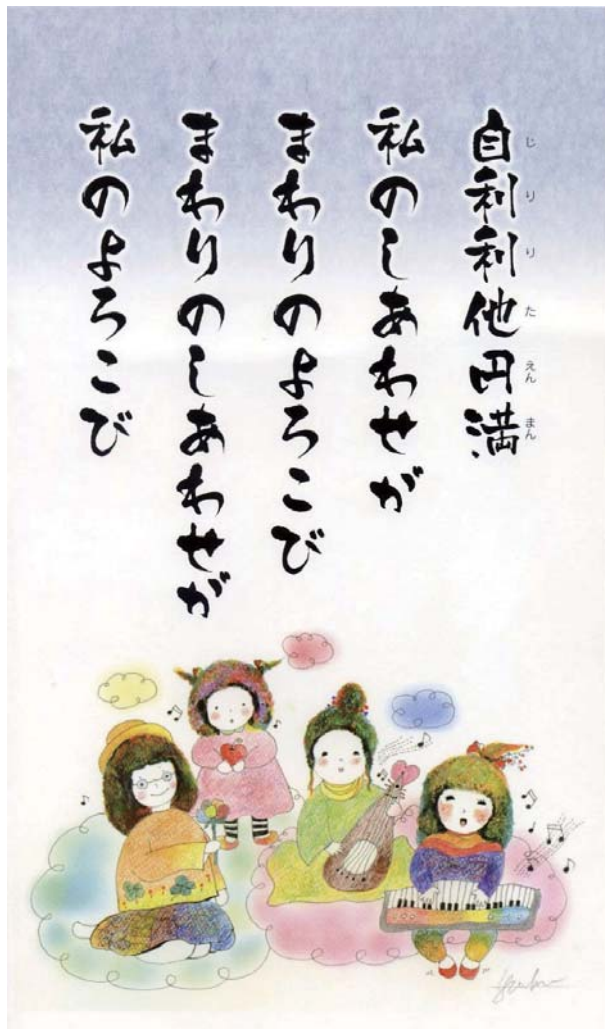 自利利他円満
じりりたえんまん
私のしあわせが
まわりのよろこび
まわりのしあわせが
私のよろこび